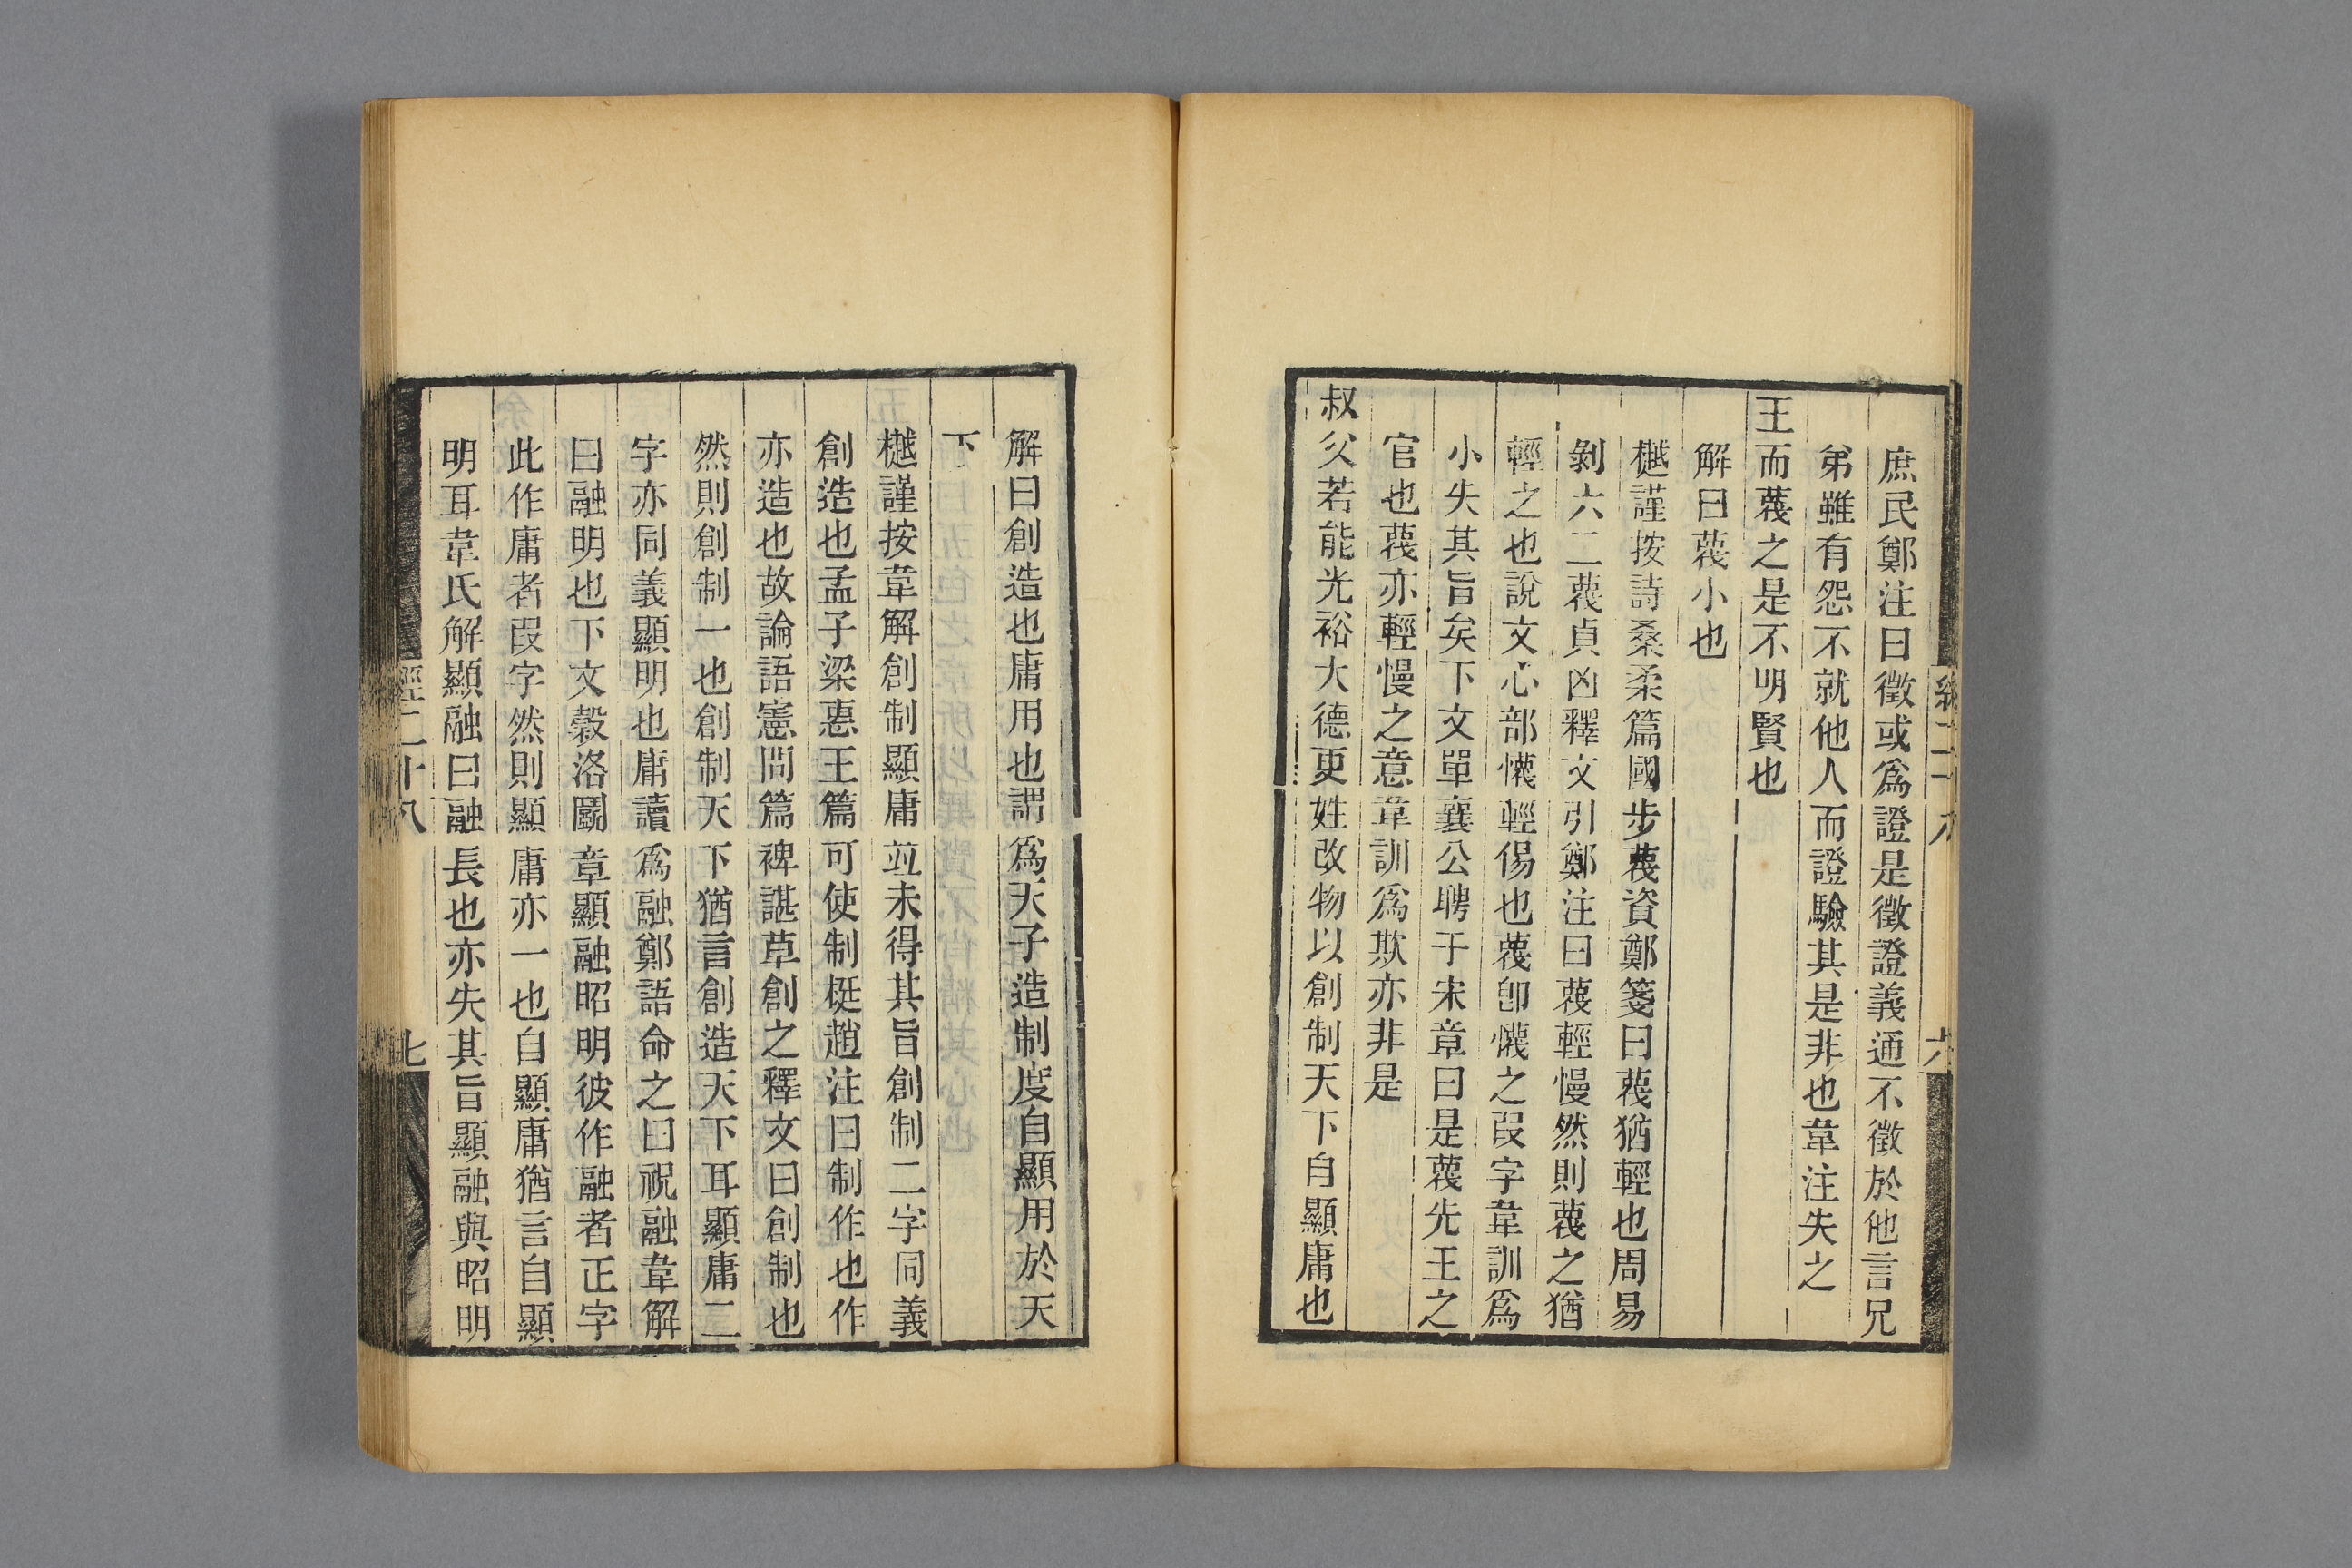 庶民鄭注曰徵或爲證是徵證義通不徵於他言兄
弟雖有怨不就他人而證驗其是非也韋注失之
王而蔑之是不明賢也
解曰蔑小也
樾謹按詩桑柔篇國步蔑資鄭箋曰蔑猶輕也周易
剝六二蔑貞凶釋文引鄭注曰蔑輕慢然則蔑之猶
輕之也說文心部懱輕傷也蔑卽懱之叚字韋訓爲
小失其旨矣下文單襄公聘于宋章曰是蔑先王之
官也蔑亦輕慢之意韋訓爲欺亦非是
叔父若能光裕大德更姓改物以創制天下自顯庸也
解曰創造也庸用也謂爲天子造制度自顯用於天
下
樾謹按韋解創制顯庸竝未得其旨創制二字同義
創造也孟子梁惠王篇可使制梃趙注曰制作也作
亦造也故論語憲問篇裨諶草創之釋文曰創制也
然則創制一也創制天下猶言創造天下耳顯庸二
字亦同義顯明也庸讀爲融鄭語命之曰祝融韋解
曰融明也下文穀洛鬭章顯融昭明彼作融者正字
此作庸者叚字然則顯庸亦一也自顯庸猶言自顯
明耳韋氏解顯融曰融長也亦失其旨顯融與昭明
經二十八
七